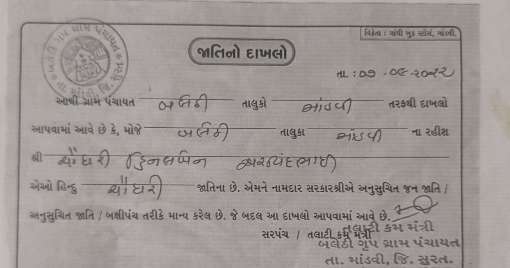 વિક્રેતા : ગાંધી બુક સ્ટોર્સ, માંડવી.
જાતિનો દાખલો
તા. : ૦૭ - ૦૬ - ૨૦૨૨
આથી ગ્રામ પંચાયત બલેઠી તાલુકો માંડવી તરફથી દાખલો
આપવામાં આવે છે કે, મોજે બલેઠી તાલુકા માંડવી ના રહીશ
શ્રી ચૌધરી
એઓ હિન્દુ ચૌધરી જાતિના છે. એમને નામદાર સરકારશ્રીએ અનુસુચિત જન જાતિ /
અનુસુચિત જાતિ / બક્ષીપંચ તરીકે માન્ય કરેલ છે. જે બદલ આ દાખલો આપવામાં આવે છે.
સરપંચ / તલાટી કમ મંત્રી
તલાટી કમ મંત્રી
બલેઠી ગૃપ ગ્રામ પંચાયત
તા. માંડવી, જિ. સુરત.